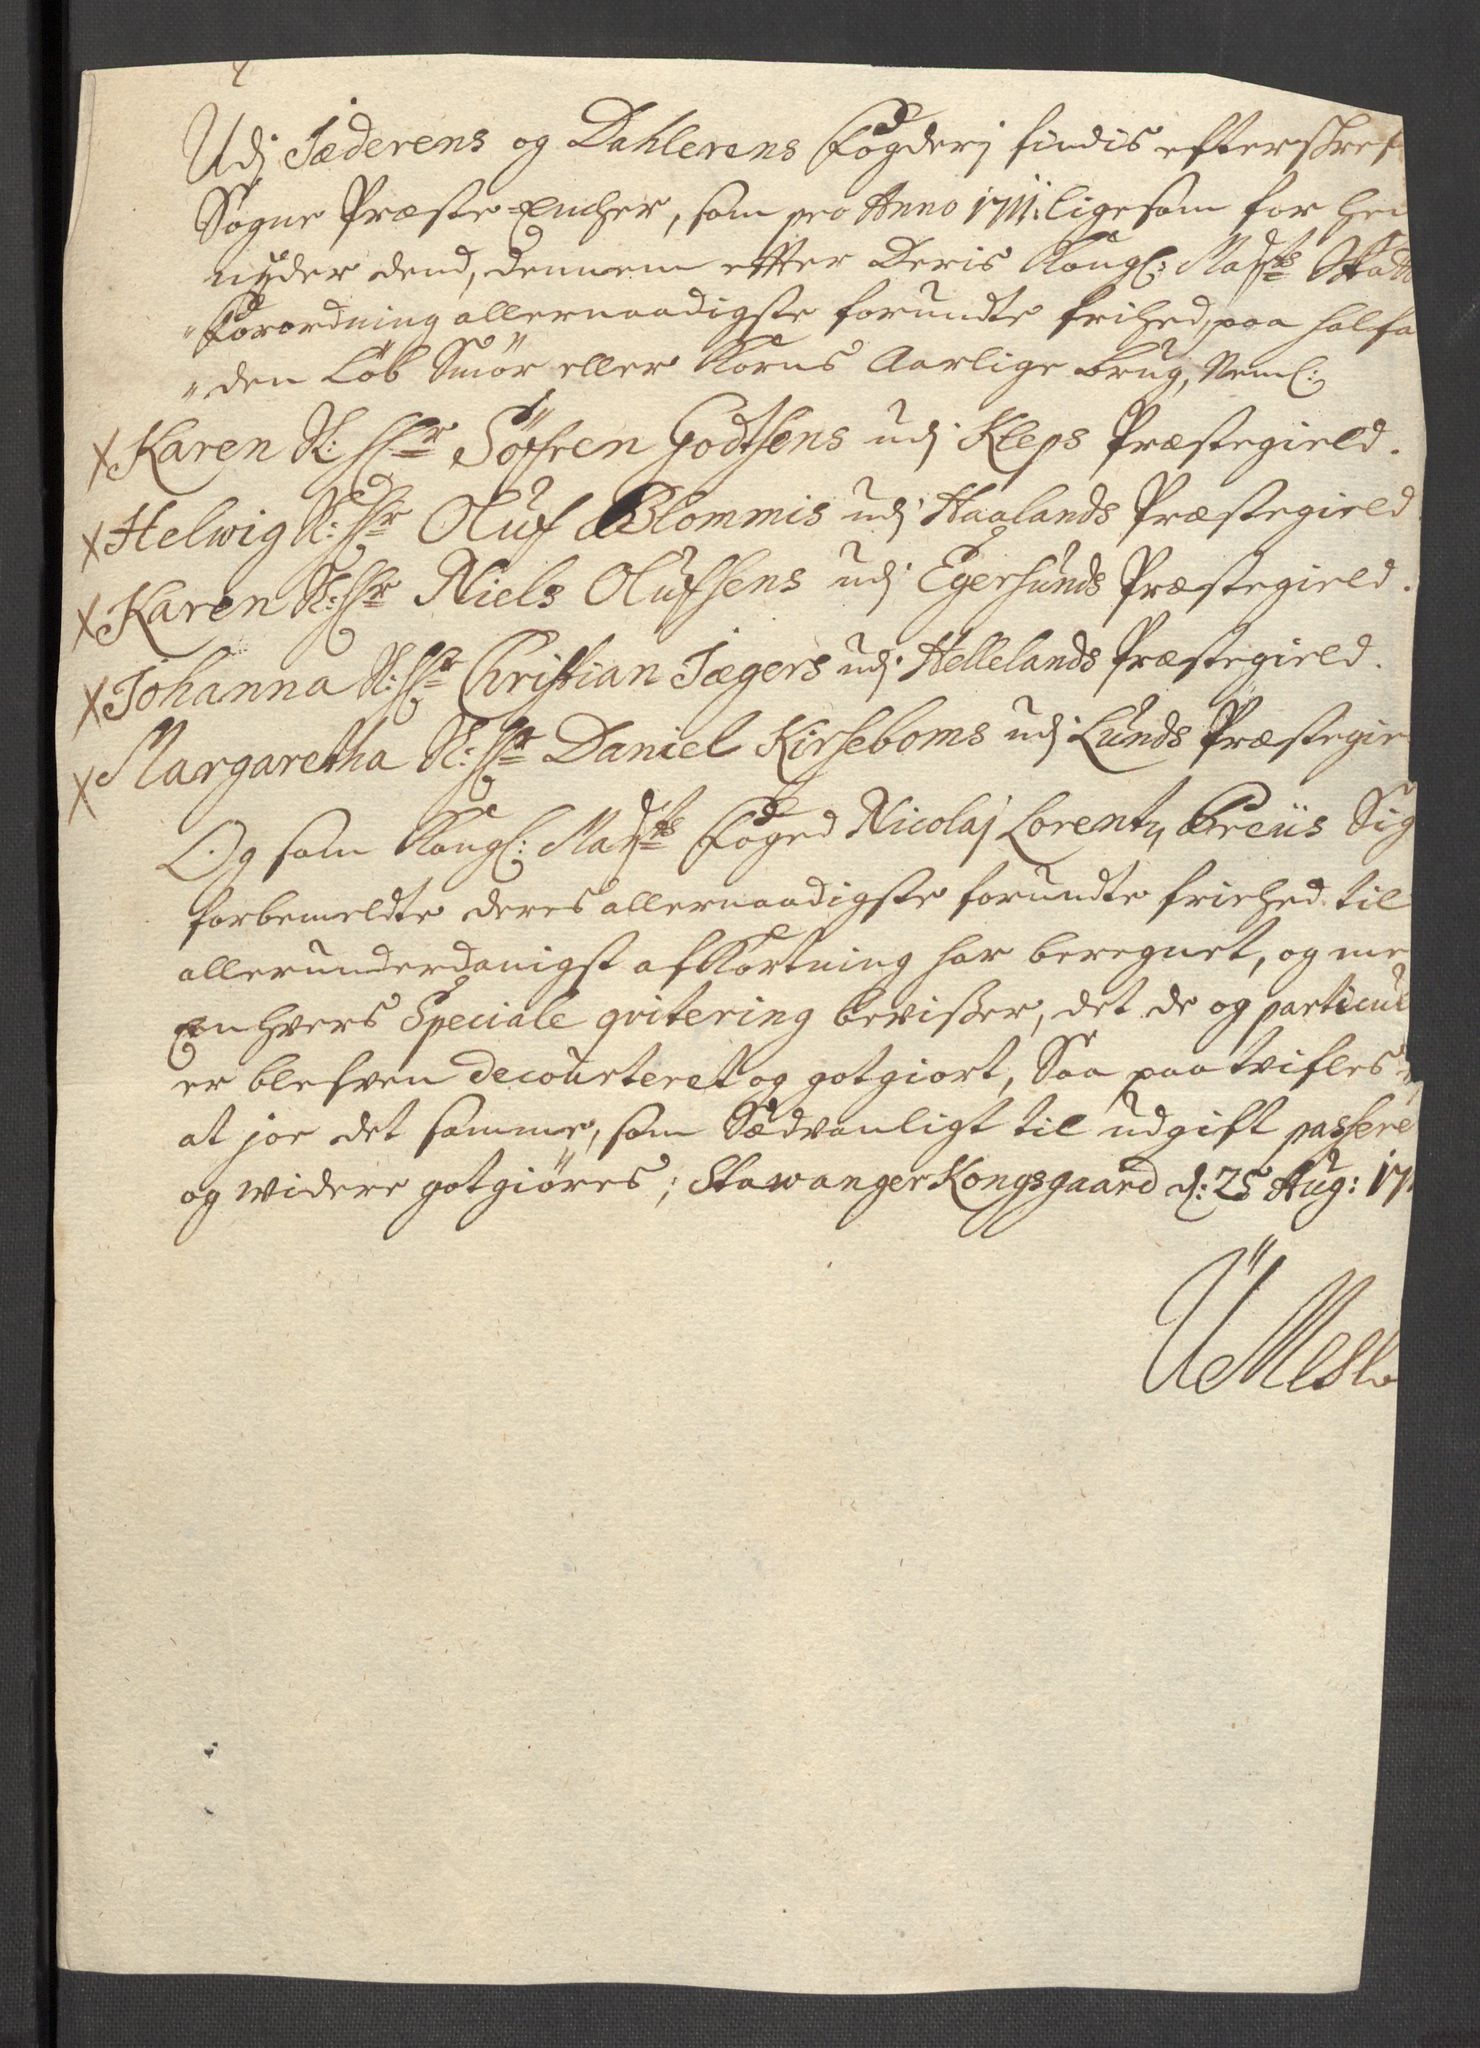 Udj Jæderens og Dahlerens Fogderj findis efterskref
Sogne Præste-Encher, som pro Anno 1711. ligesom for hen
nÿder dend, dennem efter Deris Kongl: Maÿts Skatte
"Forordning allernaadigste forundte frihed, paa halfan
"den Løb Smør eller Korns Aarlige brug, Neml:
x Karen Sl: Hr Söfren Godtsens udj Kleps Præstegield.
x Helwig Sl: Hr Oluf Blommis udj Haalands Præstegield
x Karen Sl: Hr Niels Olufsens udj Egersunds Præstegield.
x Johanna Sl: Hr Christian Jægers udj Hellelands Præstegield.
x Margaretha Sl: Hr Daniel Kirseboms udj Lunds Præstegie
Og som Kongl: Maÿts Foged Nicolaj Lorentz Preüs Sig
forbemeldte deres allernaadigste forundte friehed til
allerunderdanigst afkortning har beregnet, og me
Een hvers Speciale qvitering bevisser, det de og particul
er blefven decourteret og gotgiort, Saa paatvifles
at joe det samme, som Sædvanligt til udgift passere
og widere gotgiöres; Stawanger Kongsgaard d: 25 Aug: 171